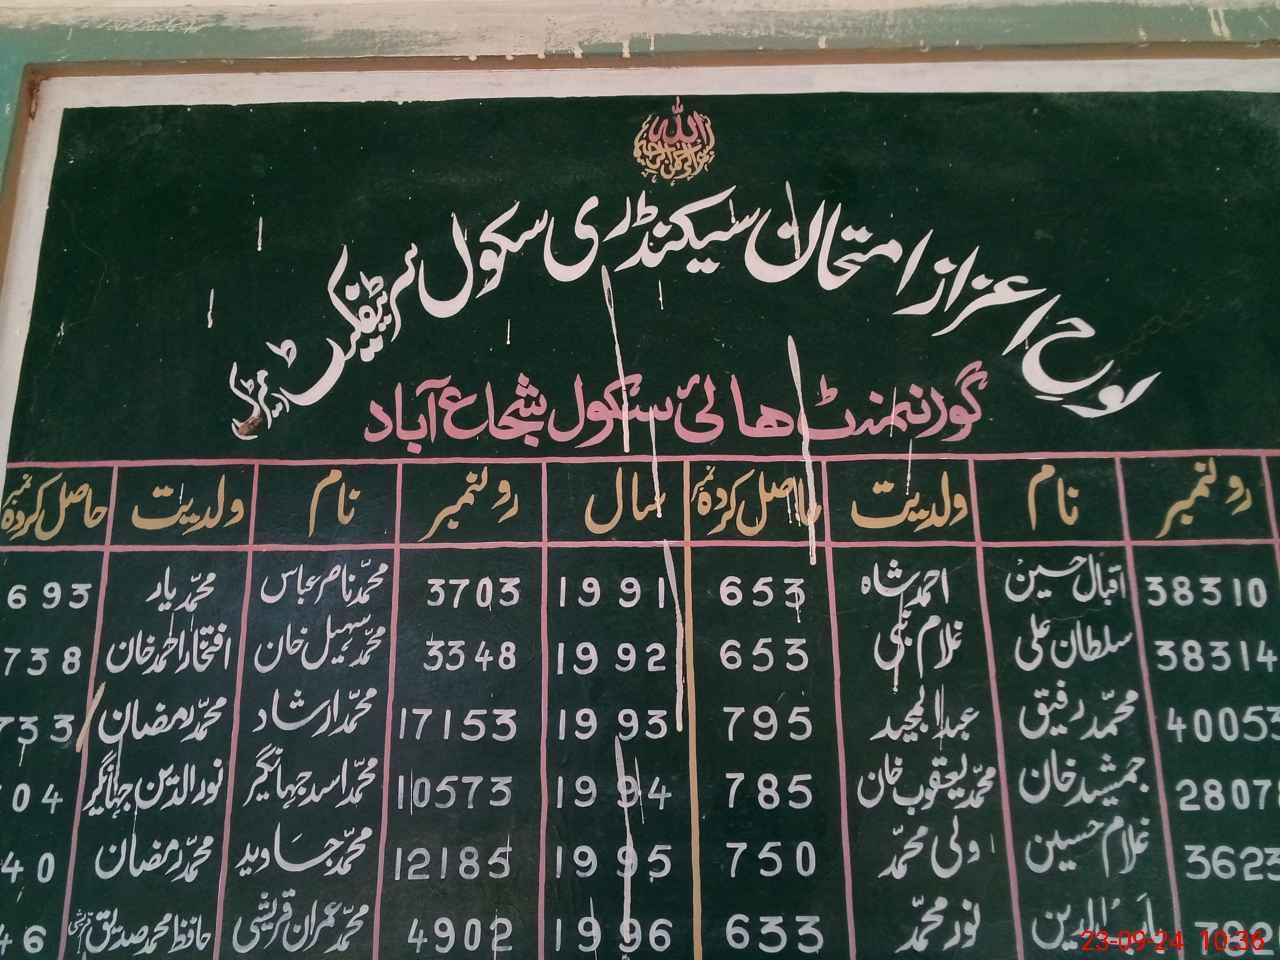 لوح اعزاز امتحان سیکنڈری سکول سرٹیفکیٹ (میٹرک)
گورنمنٹ ہائی سکول شجاع آباد
رولنمبر نام ولدیت حاصل کردہ نمبر سال رولنمبر نام ولدیت حاصل کردہ نمبر
38310 اقبال حسین احمد شاہ 653 1991 3703 محمد ناصر عباس محمد یار 693
38314 سلطان علی غلام نبی 653 1992 3348 محمد سہیل خان افتخار احمد خان 738
4005 محمد رفیق عبدالمجید 795 1993 17153 محمد ارشاد محمد رمضان 733
2807 جمشید خان محمد یعقوب خان 785 1994 10573 محمد اسد جہانگیر نورالدین جہانگیر 04
3623 غلام حسین ولی محمد 750 1995 12185 محمد جاوید محمد رمضان 40
نور محمد 633 1996 4902 محمد عمران قریشی حافظ محمد صدیق قریشی 46
23-09-24 10:36